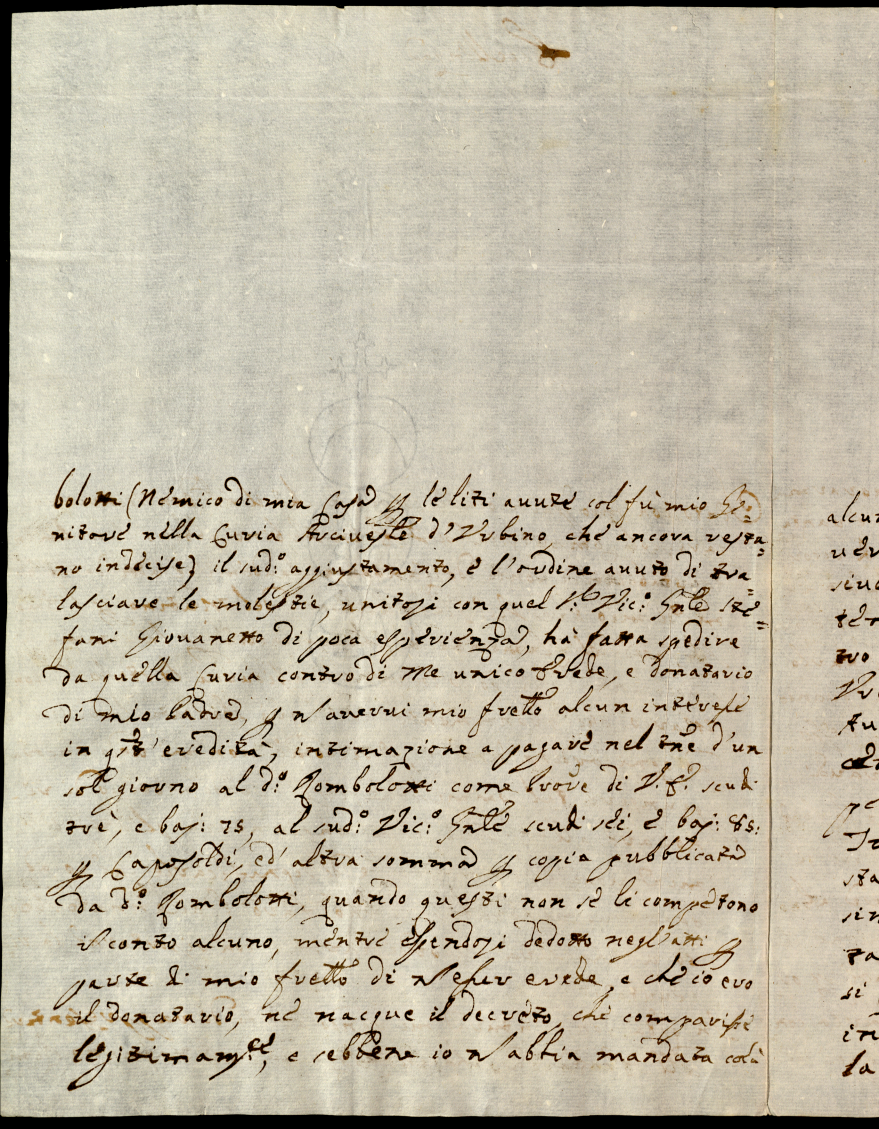 bolotti (Nemico di mia Casa p le liti avute col fù mio Ge=
nitore nella Curia Arcivesle d'Urbino, che ancora resta=
no indecise) il sud:o aggiustamento, e l'ordine avuto di tra=
lasciare le molestie, unitosi con quel Vic:o Gnle Ste=
fani Giovanetto di poca esperienza, hà fatta spedire
da quella Curia contro di me unico Erede, e donatario
di mio Padre, p n averui mio frello alcun interesse
in eredità, intimazione a pagare nel tne d'un
sol giorno al d:o Rombolotti come di scudi
trè, e baj: 75, al sud:o Vic:o Gnle scudi sei, e baj: 85:
p Caposoldi, ed altra somma p copia pubblicata
da d:o Rombolotti, quando questi non se li competono
conto alcuno, mentre essendosi dedotto negl'atti p
parte di mio frello di n esser erede, e che io ero
il donatario, ne nacque il decreto, che comparisse
legitimamte, e sebbene io n abbia mandata colà
alcun
siuo
tro
stà
sin
ta
si
in
la